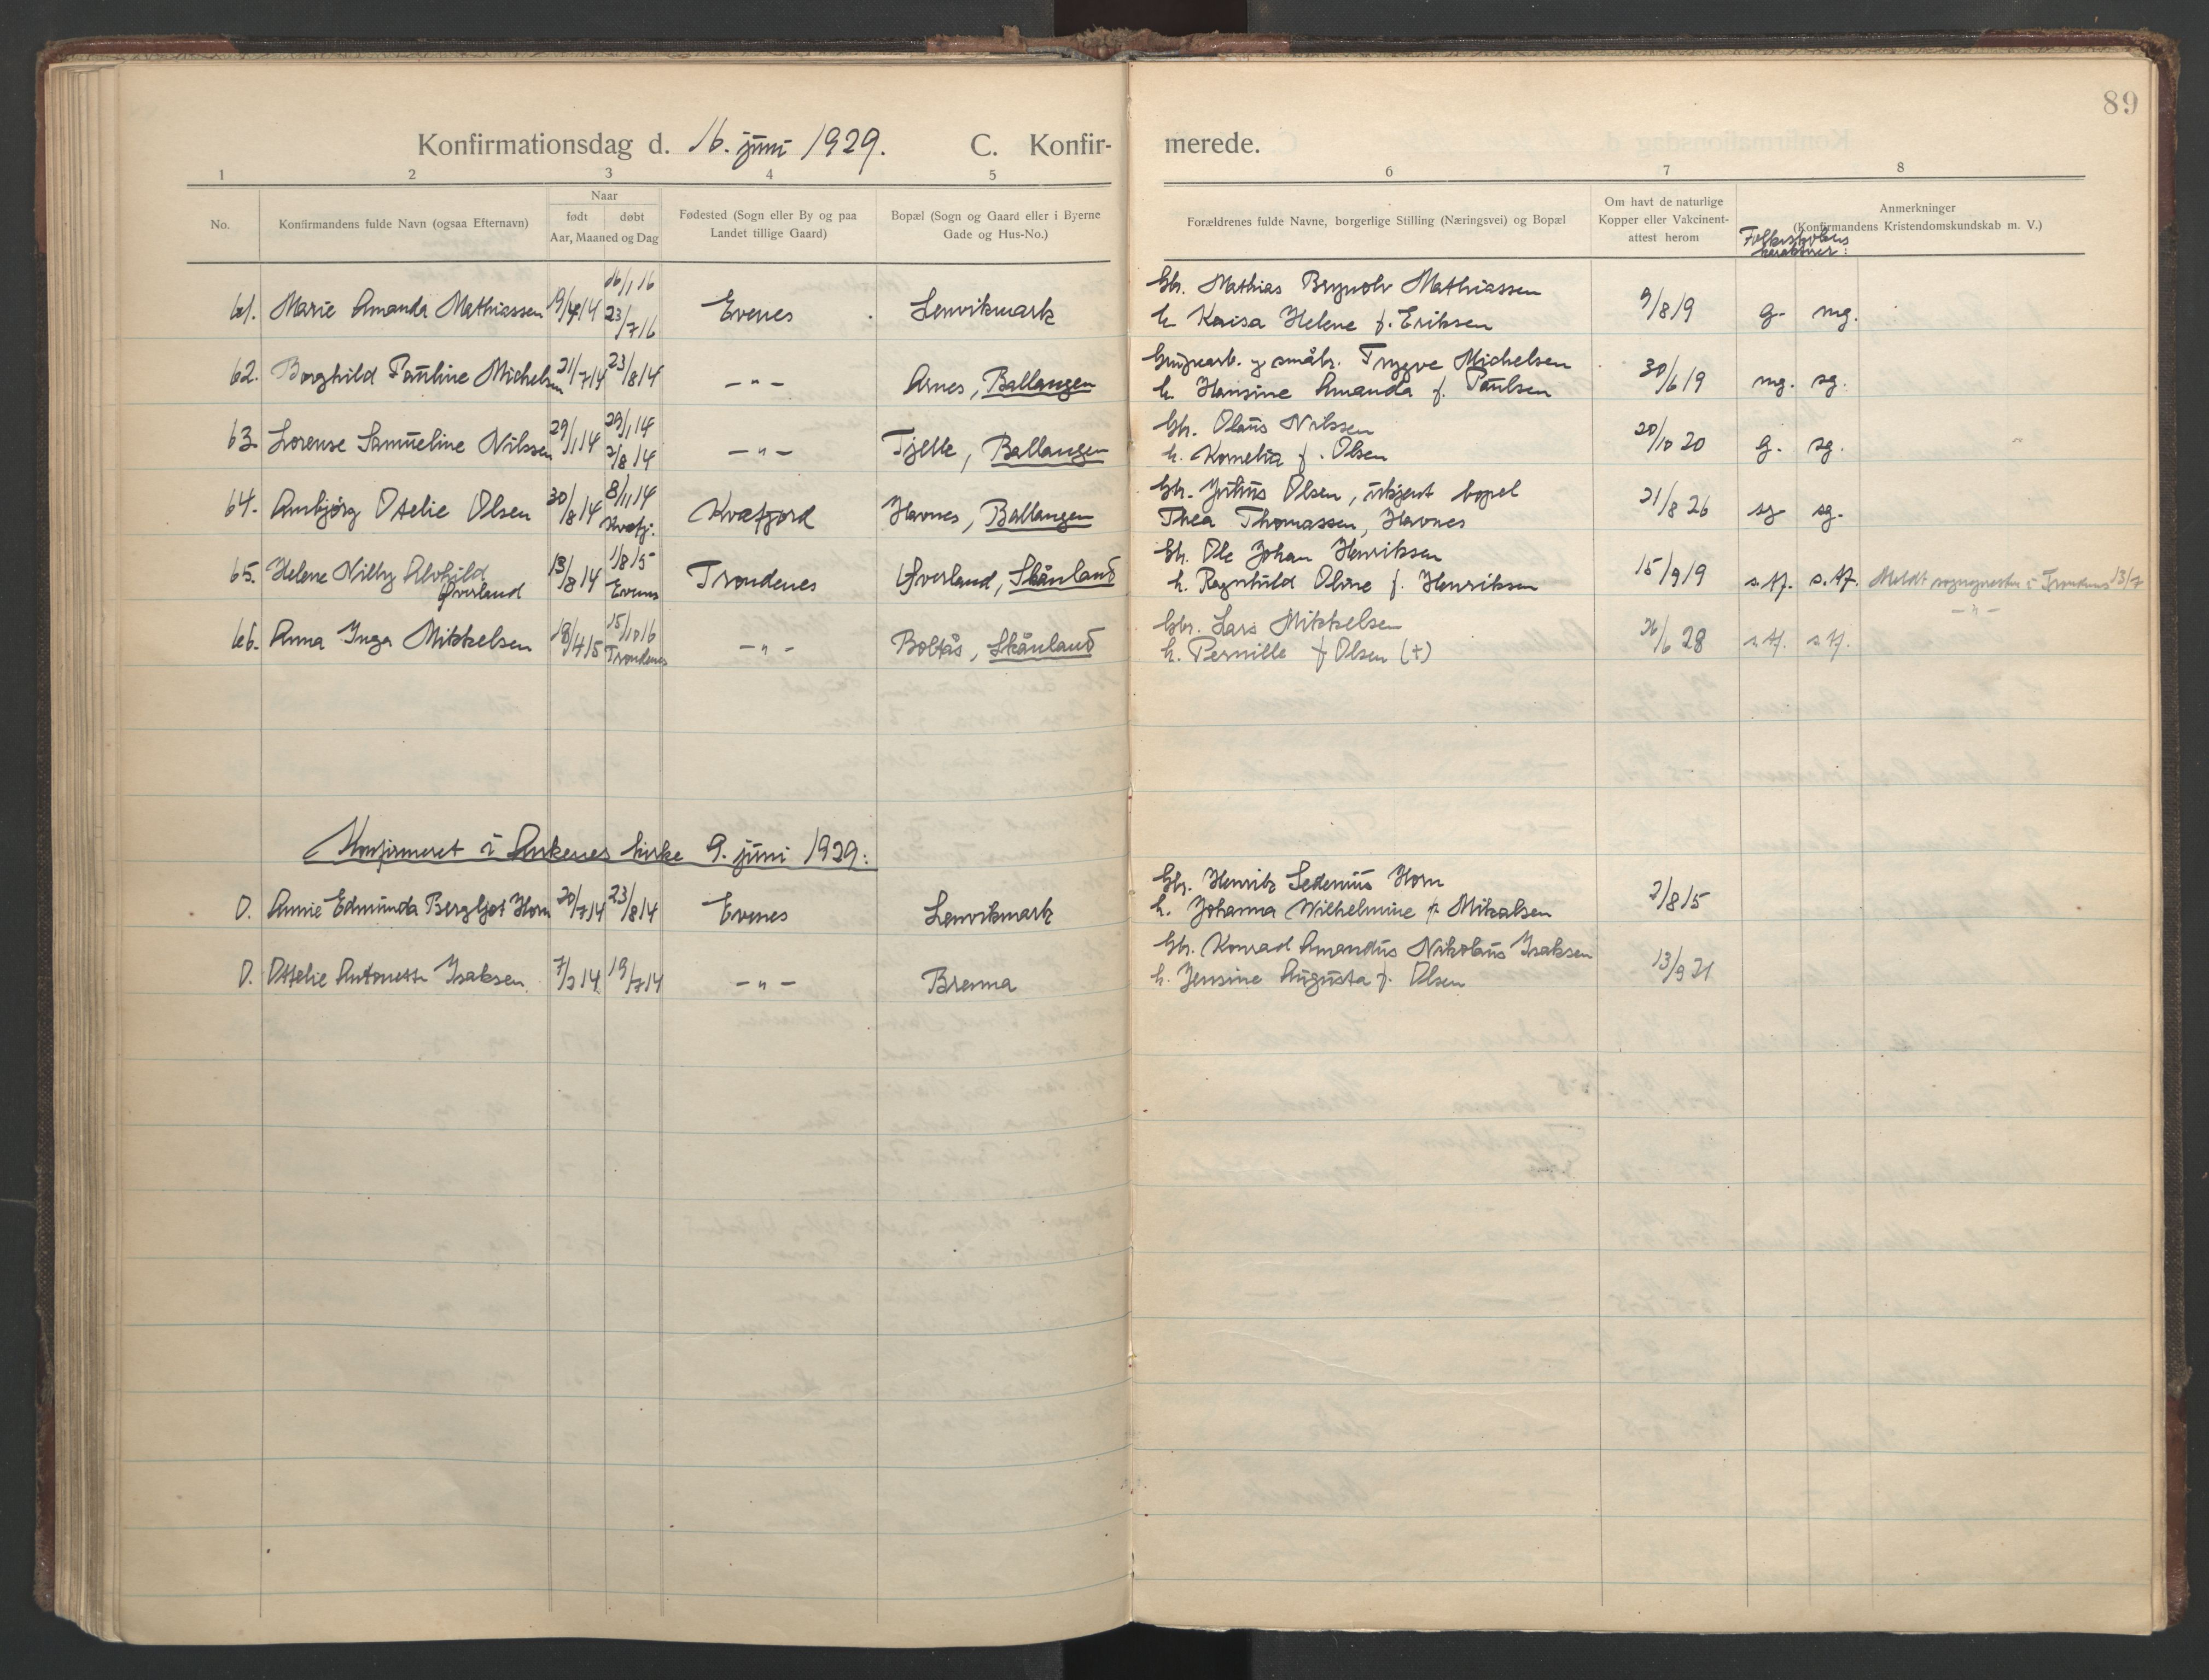 89
Konfirmationsdag d. 16. juni 1929. C. Konfir- merede.
1 2 3 4 5 6 7 8
No.
Konfirmandens fulde Navn (ogsaa Efternavn)
Naar
født døbt
Aar, Maaned og Dag
Fødested (Sogn eller By og paa
Landet tillige Gaard)
Bopæl (Sogn og Gaard eller i Byerne
Gade og Hus-No.)
Forældrenes fulde Navne, borgerlige Stilling (Næringsvei) og Bopæl
Om havt de naturlige
Kopper eller Vakcinent-
attest herom
Anmerkninger
(Konfirmandens Kristendomskundskab m. V.)
Folkeskolens
karakterer:
61. Marie Amanda Mathiassen 19/4 14 16/1 16 23/7 16 Evenes Lenvikmark
Gbr. Mathias Brynolv Mathiassen
h. Kaisa Helene f. Eriksen 9/8 19 g. mg.
62. Borghild Pauline Michelsen 21/7 14 23/8 14 — " — Arnes, Ballangen
Gruvearb. og småbr. Trygve Michelsen
h. Hansine Amanda f. Paulsen 30/6 19 mg. sg.
63. Lorense Samueline Nilssen 29/1 14 29/1 14 2/8 14 — " — Fjelle, Ballangen
Gbr. Olaus Nilssen
h. Kornelia f. Olsen 20/10 20 g. sg.
64. Ambjørg Otelie Olsen 30/8 14 8/11 14 Kvæfj. Kvæfjord Havnes, Ballangen
Gbr. Julius Olsen, ukjent bopel
Thea Thomassen, Havnes 21/8 26 sg sg.
65. Helene Nilly Alvhild
Øverland 13/8 14 1/8 15 Evenes Trondenes Øverland, Skånland
Gbr. Ole Johan Henriksen
h. Ragnhild Oline f. Henriksen 15/9 19 s.tf. s.tf. Meldt sognepresten i Trondenes 13/7
66. Anna Inga Mikkelsen 18/4 15 15/10 16 Trondenes — " — Boltås, Skånland
Gbr. Lars Mikkelsen
h. Pernille f Olsen (+) 26/6 28 s.tf. s.tf. — " —
Konfirmeret i Ankenes kirke 9. juni 1929:
0. Annie Edmunda Bergljot Horn 20/7 14 23/8 14 Evenes Lenvikmark
Gbr. Henrik Sedenius Horn
h. Johanna Wilhelmine f. Mikalsen 2/8 15
0. Otelie Antonette Isaksen 7/3 14 19/7 14 — " — Brenna
Gbr. Konrad Amandus Nikolaus Isaksen
h. Jensine Augusta f. Olsen 13/9 21